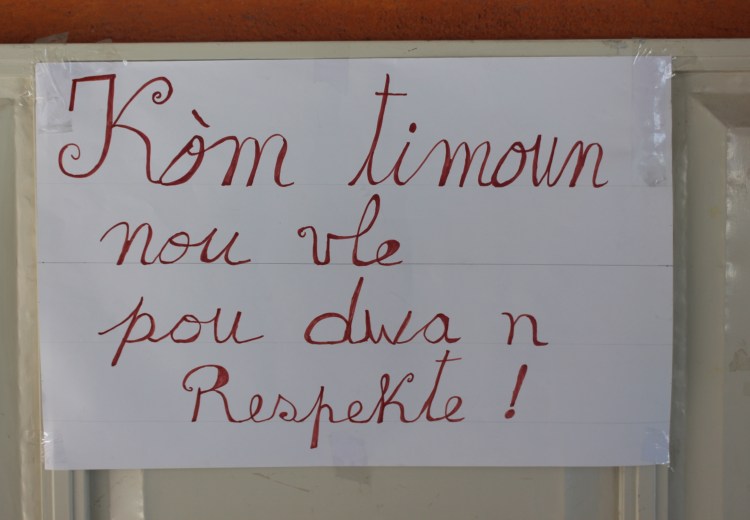 Kòm timoun
nou vle
pou dwa n
Respekte !